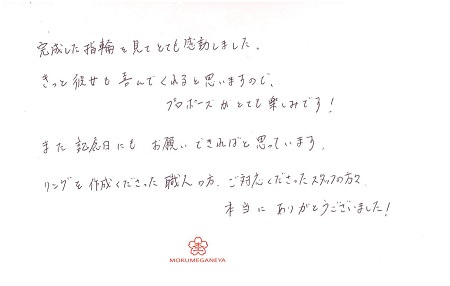 完成した指輪を見てとても感動しました。
きっと彼女も喜んでくれると思いますので、
プロポーズがとても楽しみです！
また記念日にもお願いできればと思っています。
リングを作成くださった職人の方、ご対応くださったスタッフの方々、
本当にありがとうございました！
MOKUMEGANEYA